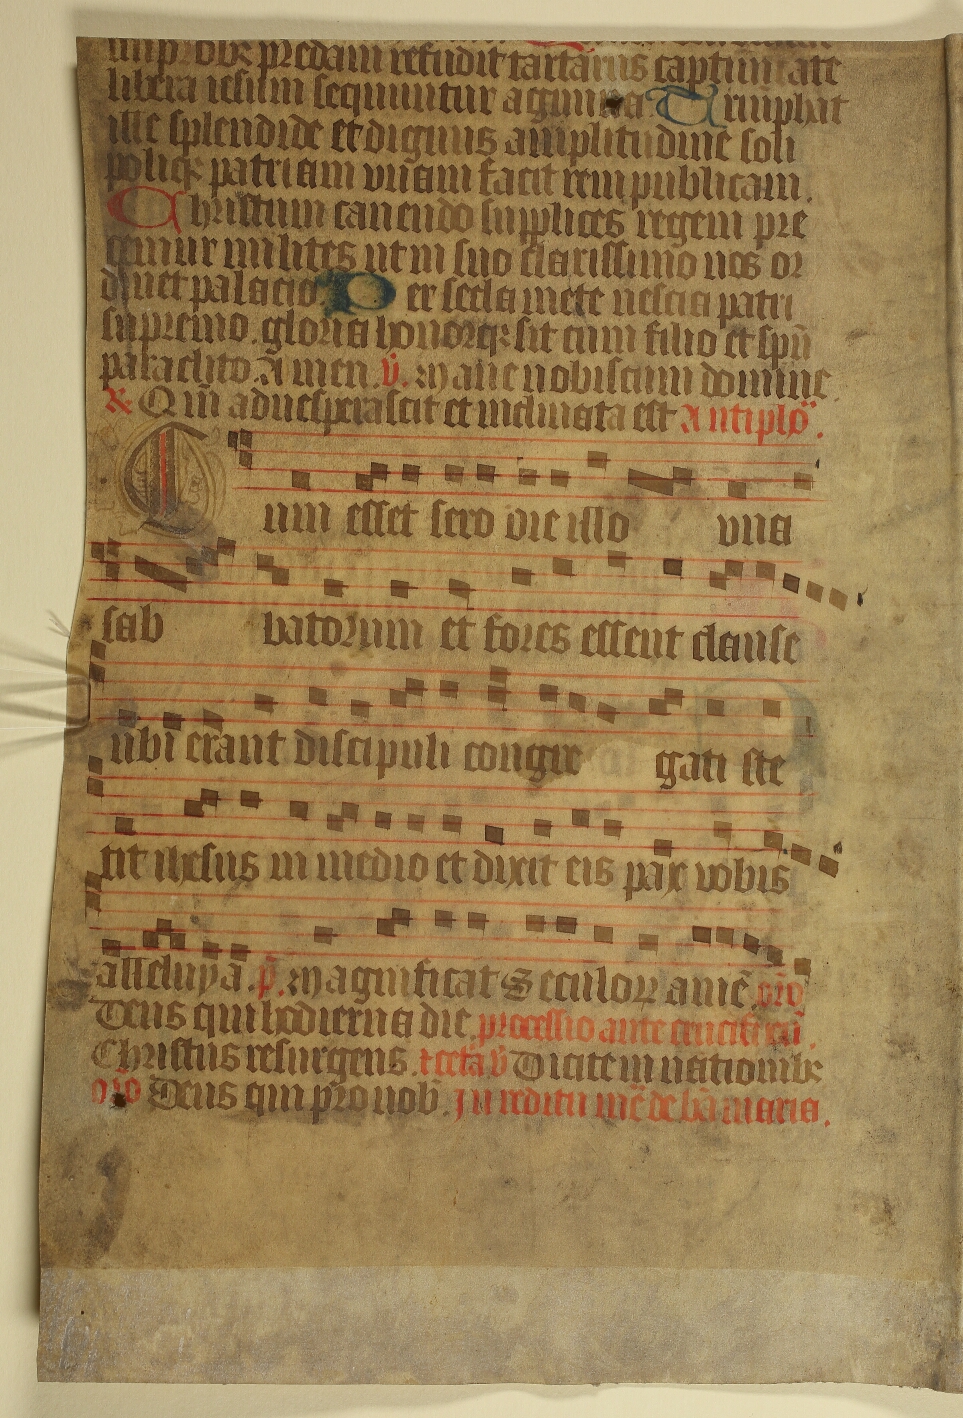 improbꝫ predam refudit tartarus captiuitate
libera iesum sequuntur agmina. Triūphat
ille splendide et dignus amplitudine soli
poliqꝫ patriam vnam facit rempublicam.
Christum canendo supplices regem pre
cemur milites ut in suo clarissimo nos or
dinet palacio. Per secla mete nescia patri
supremo. gloria honorqꝫ sit cum filio et spū
paraclito. Amen. v̄. Mane nobiscum domine
R Qm̄ aduesperascit et inclinata est Antiphō.
Cum esset sero die illo vna
sab batorum et fores essent clause
ubi erant discipuli congre gati ste
tit ihesus in medio et dixit eis pax vobis
alleluya. p̄. Magnificat Seculorꝝ amē. orō
Deus qui hodierna die processio ante crucifixū.
Christus resurgens. v̄ Dicite in nationibꝫ
orō Deus qui pro nob̄. In reditu mē de bā maria.